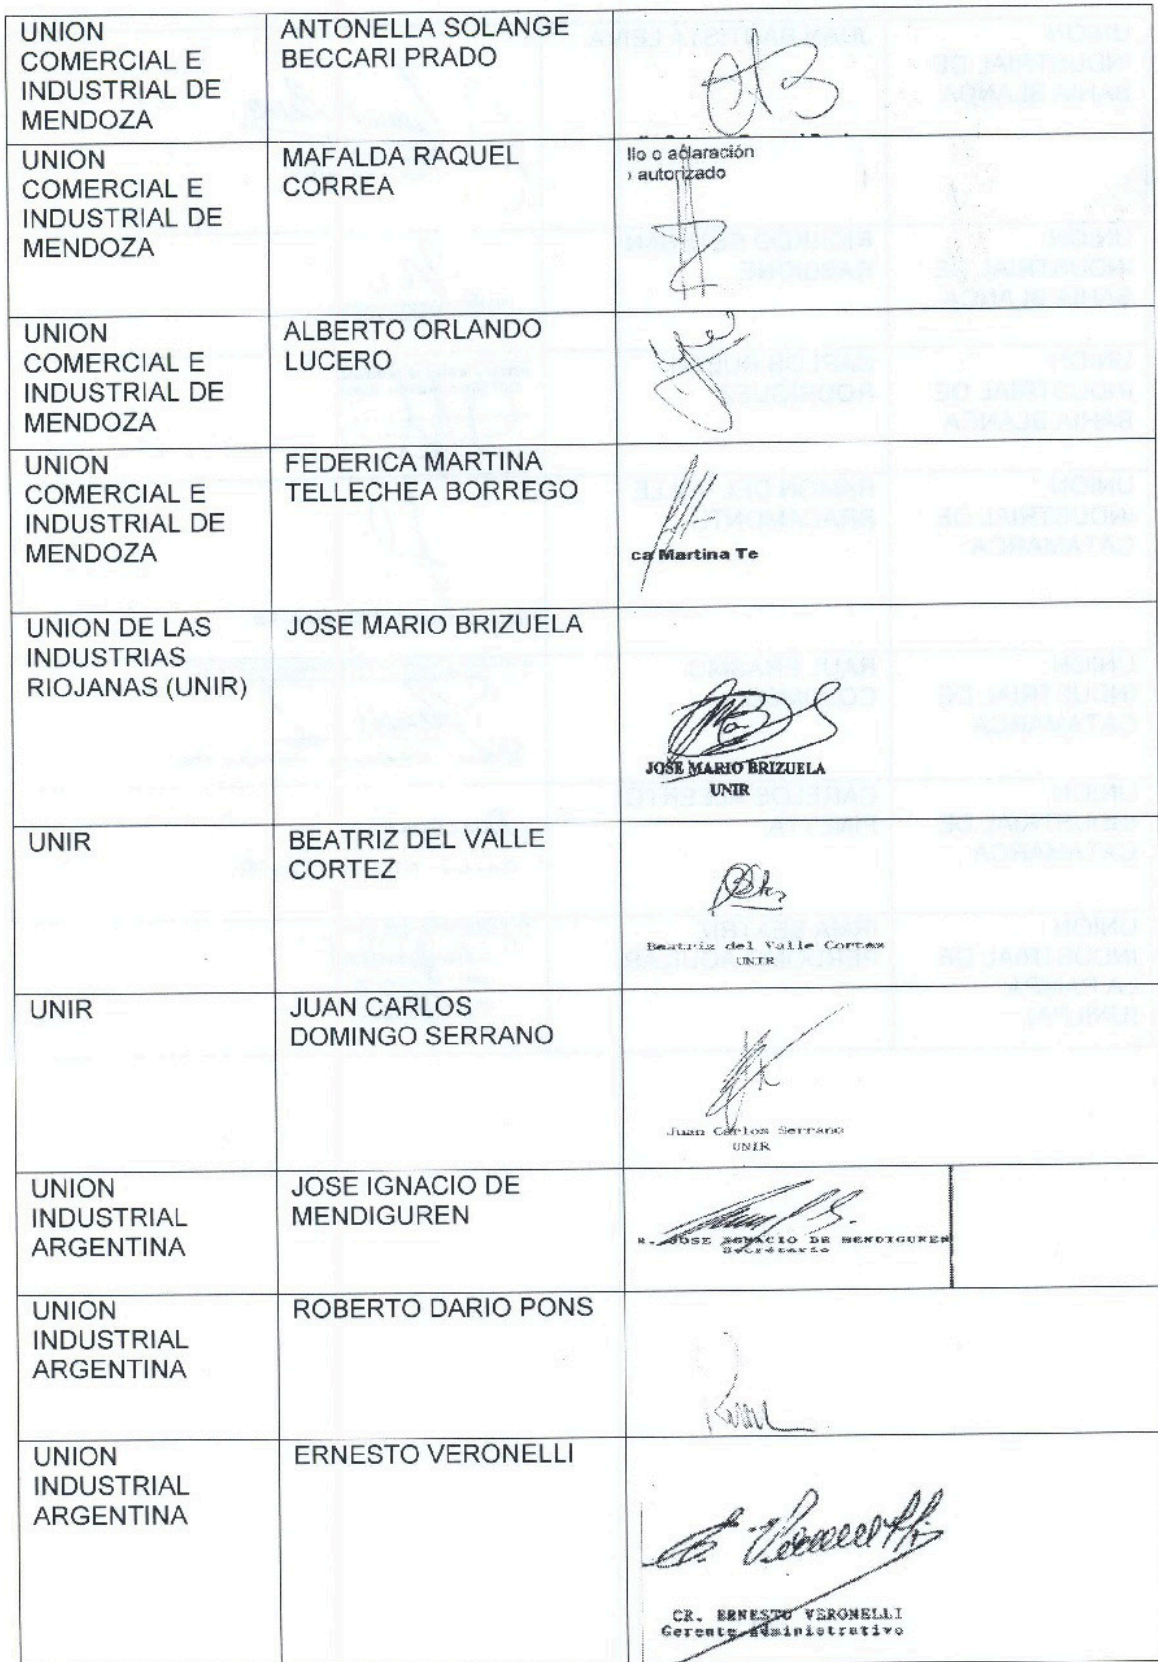 UNION
COMERCIAL E
INDUSTRIAL DE
MENDOZA
ANTONELLA SOLANGE
BECCARI PRADO
UNION
COMERCIAL E
INDUSTRIAL DE
MENDOZA
MAFALDA RAQUEL
CORREA
llo o aclaración
autorizado
UNION
COMERCIAL E
INDUSTRIAL DE
MENDOZA
ALBERTO ORLANDO
LUCERO
UNION
COMERCIAL E
INDUSTRIAL DE
MENDOZA
FEDERICA MARTINA
TELLECHEA BORREGO
ca Martina Te
UNION DE LAS
INDUSTRIAS
RIOJANAS (UNIR)
JOSE MARIO BRIZUELA
JOSE MARIO BRIZUELA
UNIR
UNIR
BEATRIZ DEL VALLE
CORTEZ
Beatriz del Valle Cortez
UNIR
UNIR
JUAN CARLOS
DOMINGO SERRANO
Juan Carlos Serrano
UNIR
UNION
INDUSTRIAL
ARGENTINA
JOSE IGNACIO DE
MENDIGUREN
R. JOSE IGNACIO DE MENDIGUREN
Secretario
UNION
INDUSTRIAL
ARGENTINA
ROBERTO DARIO PONS
UNION
INDUSTRIAL
ARGENTINA
ERNESTO VERONELLI
CR. ERNESTO VERONELLI
Gerente Administrativo